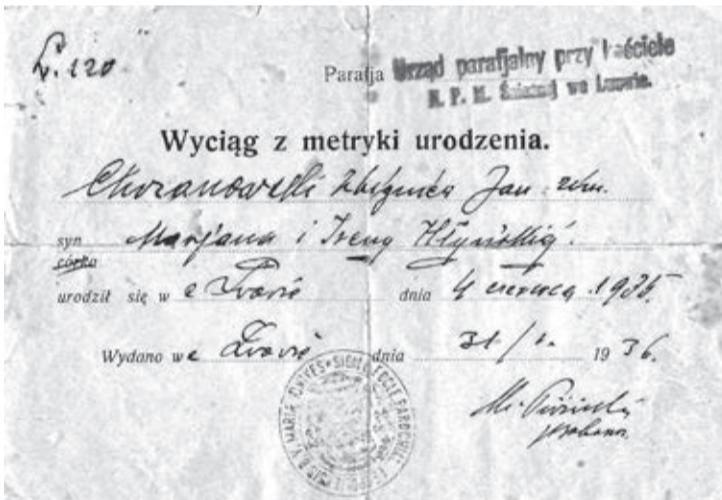 L. 120
Parafja Urząd parafjalny przy kościele
N. P. M. Śnieżnej we Lwowie.
Wyciąg z metryki urodzenia.
Chrzanowski Zbigniew Jan
syn Marjana i Ireny
córka
urodził się w e Lwowie dnia 4 czerwca 1935.
Wydano we Lwowie dnia 31/ 1936.